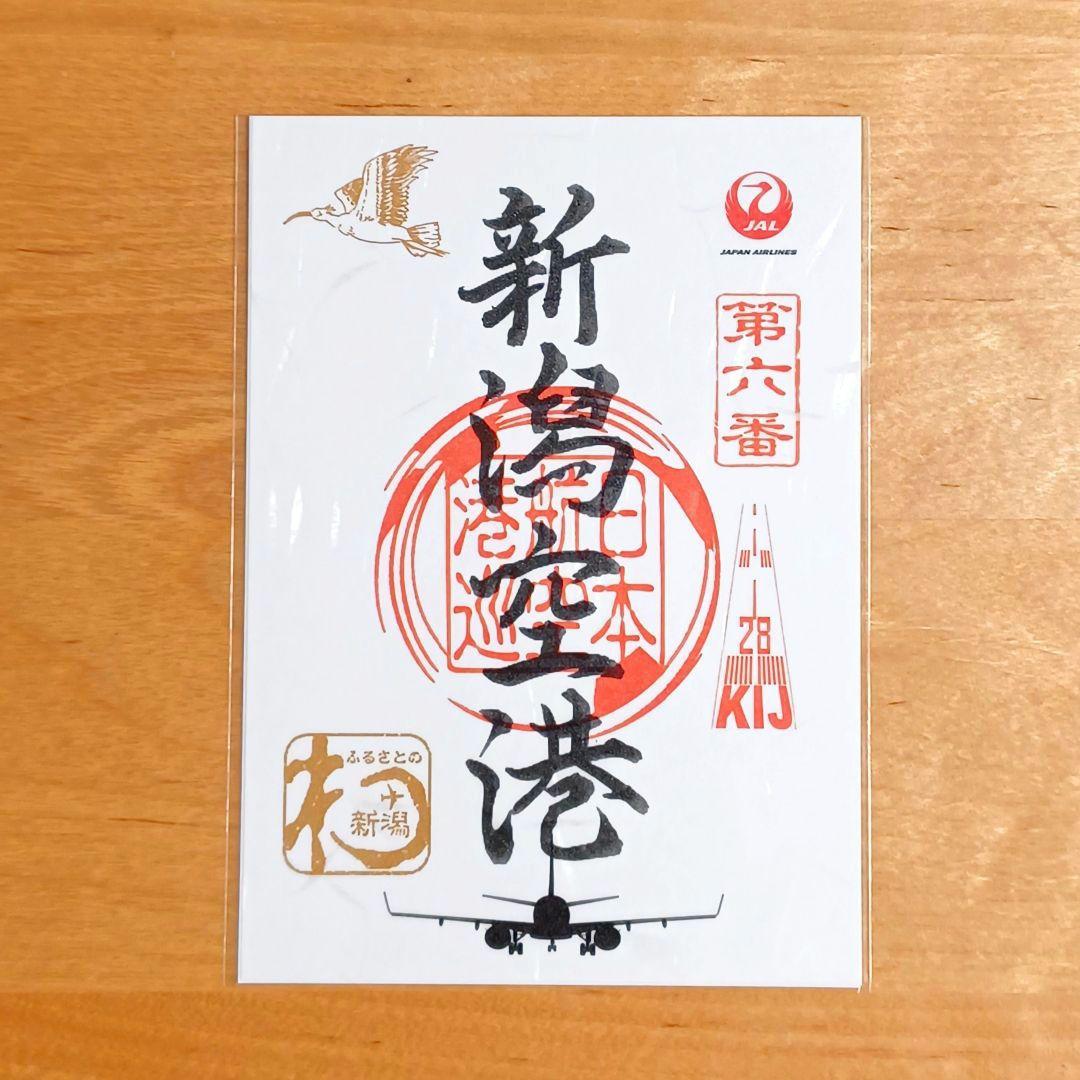 新潟空港
JAL
JAPAN AIRLINES
第六番
日本
航空
港巡
28
KIJ
ふるさとの
新潟